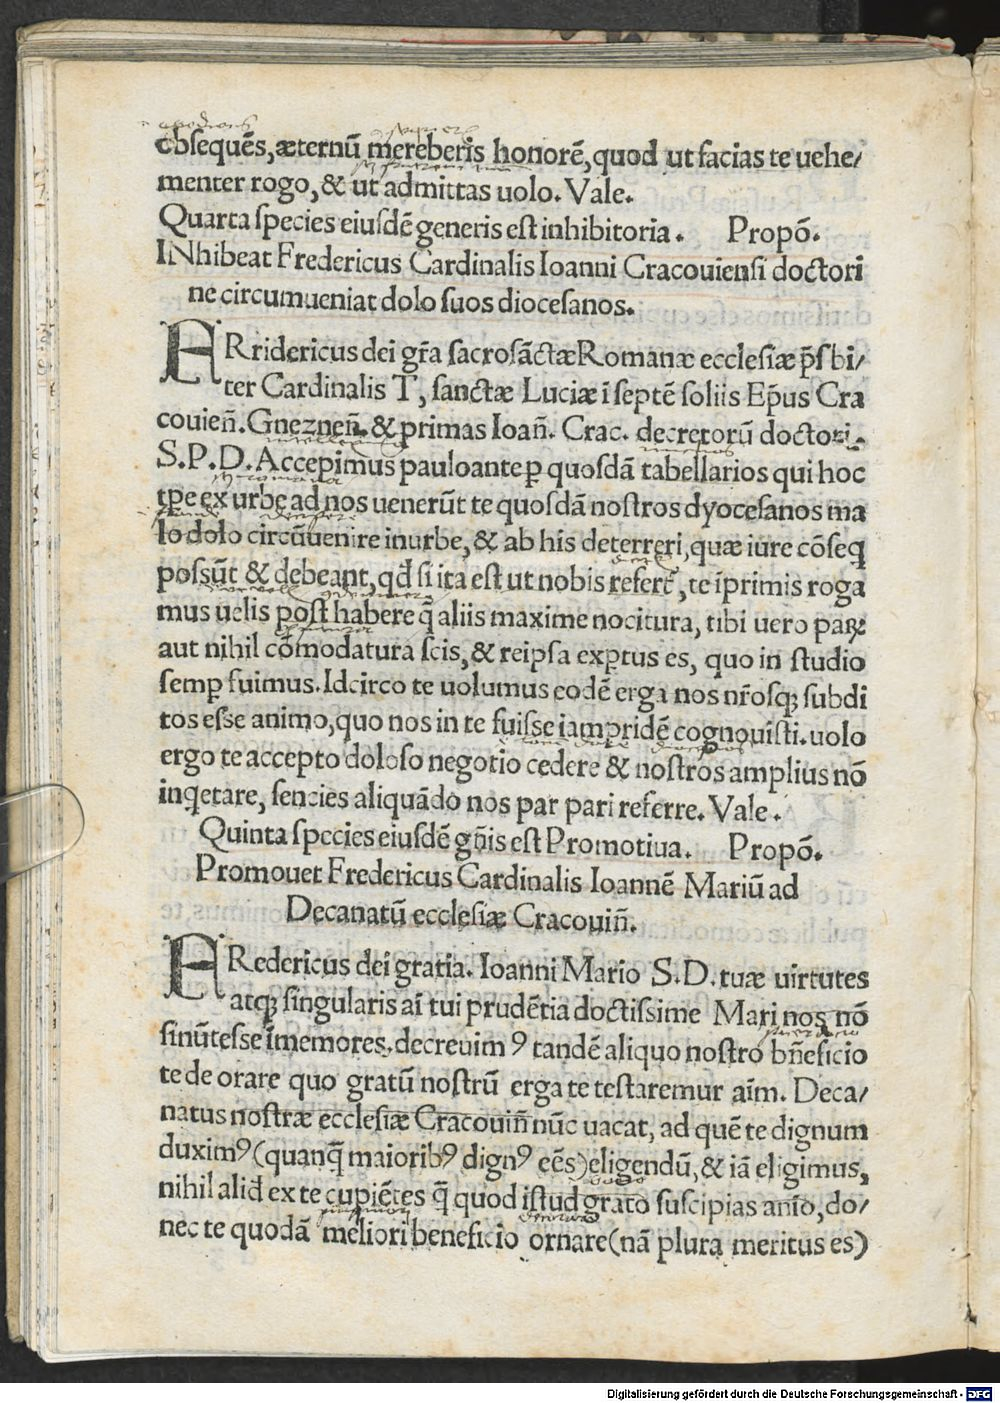 obsequēs, æternū mereberis honorē, quod ut facias te uehe/
menter rogo, & ut admittas uolo. Vale.
Quarta species eiusdē generis est inhibitoria. Propō.
INhibeat Fredericus Cardinalis Ioanni Cracouiensi doctori
ne circumueniat dolo suos diocesanos.
FRridericus dei gr̄a sacrosāctæ Romanæ ecclesiæ p̄sbi/
ter Cardinalis T, sanctæ Luciæ ī septē soliis Ep̄us Cra
couien̄. Gneznen̄. & primas Ioan̄. Crac. decretorū doctori.
S.P.D. Accepimus pauloante ꝑ quosdā tabellarios qui hoc
tꝑe ex urbe ad nos uenerūt te quosdā nostros dyocesanos ma
lo dolo circūuenire inurbe, & ab his deterreri, quæ iure cōseq
possūt & debeant, qđ si ita est ut nobis refert̄, te īprimis roga
mus uelis post habere q̄ aliis maxime nocitura, tibi uero paꝝ
aut nihil cōmodatura scis, & reipsa exꝑtus es, quo in studio
semꝑ fuimus. Idcirco te uolumus eodē erga nos nr̄osqꝫ subdi
tos esse animo, quo nos in te fuisse iampridē cognouisti. uolo
ergo te accepto doloso negotio cedere & nostros amplius nō
inq̇etare, sencies aliquādo nos par pari referre. Vale.
Quinta species eiusdē gn̄is est Promotiua. Propō.
Promouet Fredericus Cardinalis Ioannē Mariū ad
Decanatū ecclesiæ Cracouin̄.
FRedericus dei gratia. Ioanni Mario S.D. tuæ uirtutes
atqꝫ singularis ai̅ tui prudētia doctissime Mari nos nō
sinūtesse īmemores. decreuimꝰ tandē aliquo nostro bn̄eficio
te de orare quo gratū nostrū erga te testaremur ai̅m. Deca/
natus nostræ ecclesiæ Cracouin̄ nūc uacat, ad quē te dignum
duximꝰ (quanq̄ maioribꝰ dignꝰ eēs) eligendū, & iā eligimus,
nihil aliđ ex te cupiētes q̄ quod istud grato suscipias anīo, do/
nec te quodā meliori beneficio ornare (nā plura meritus es)
Digitalisierung gefördert durch die Deutsche Forschungsgemeinschaft - DFG